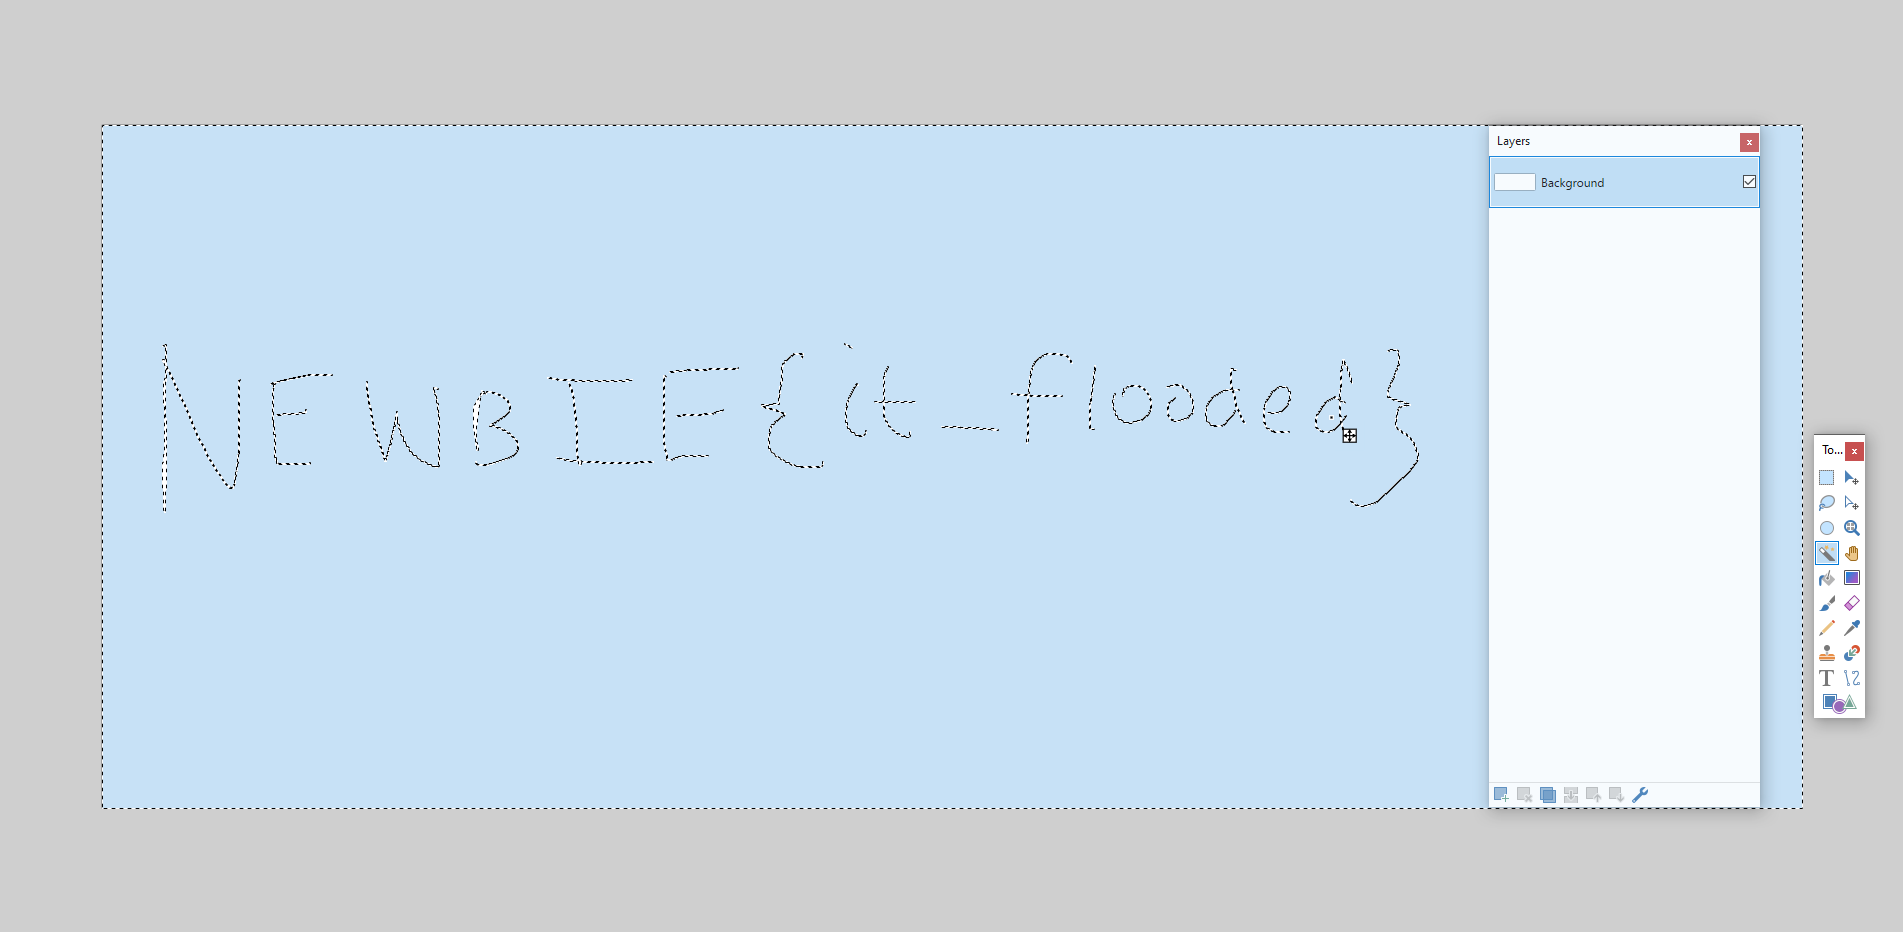 NEWBIE{it_flooded}
Layers
Background
To...